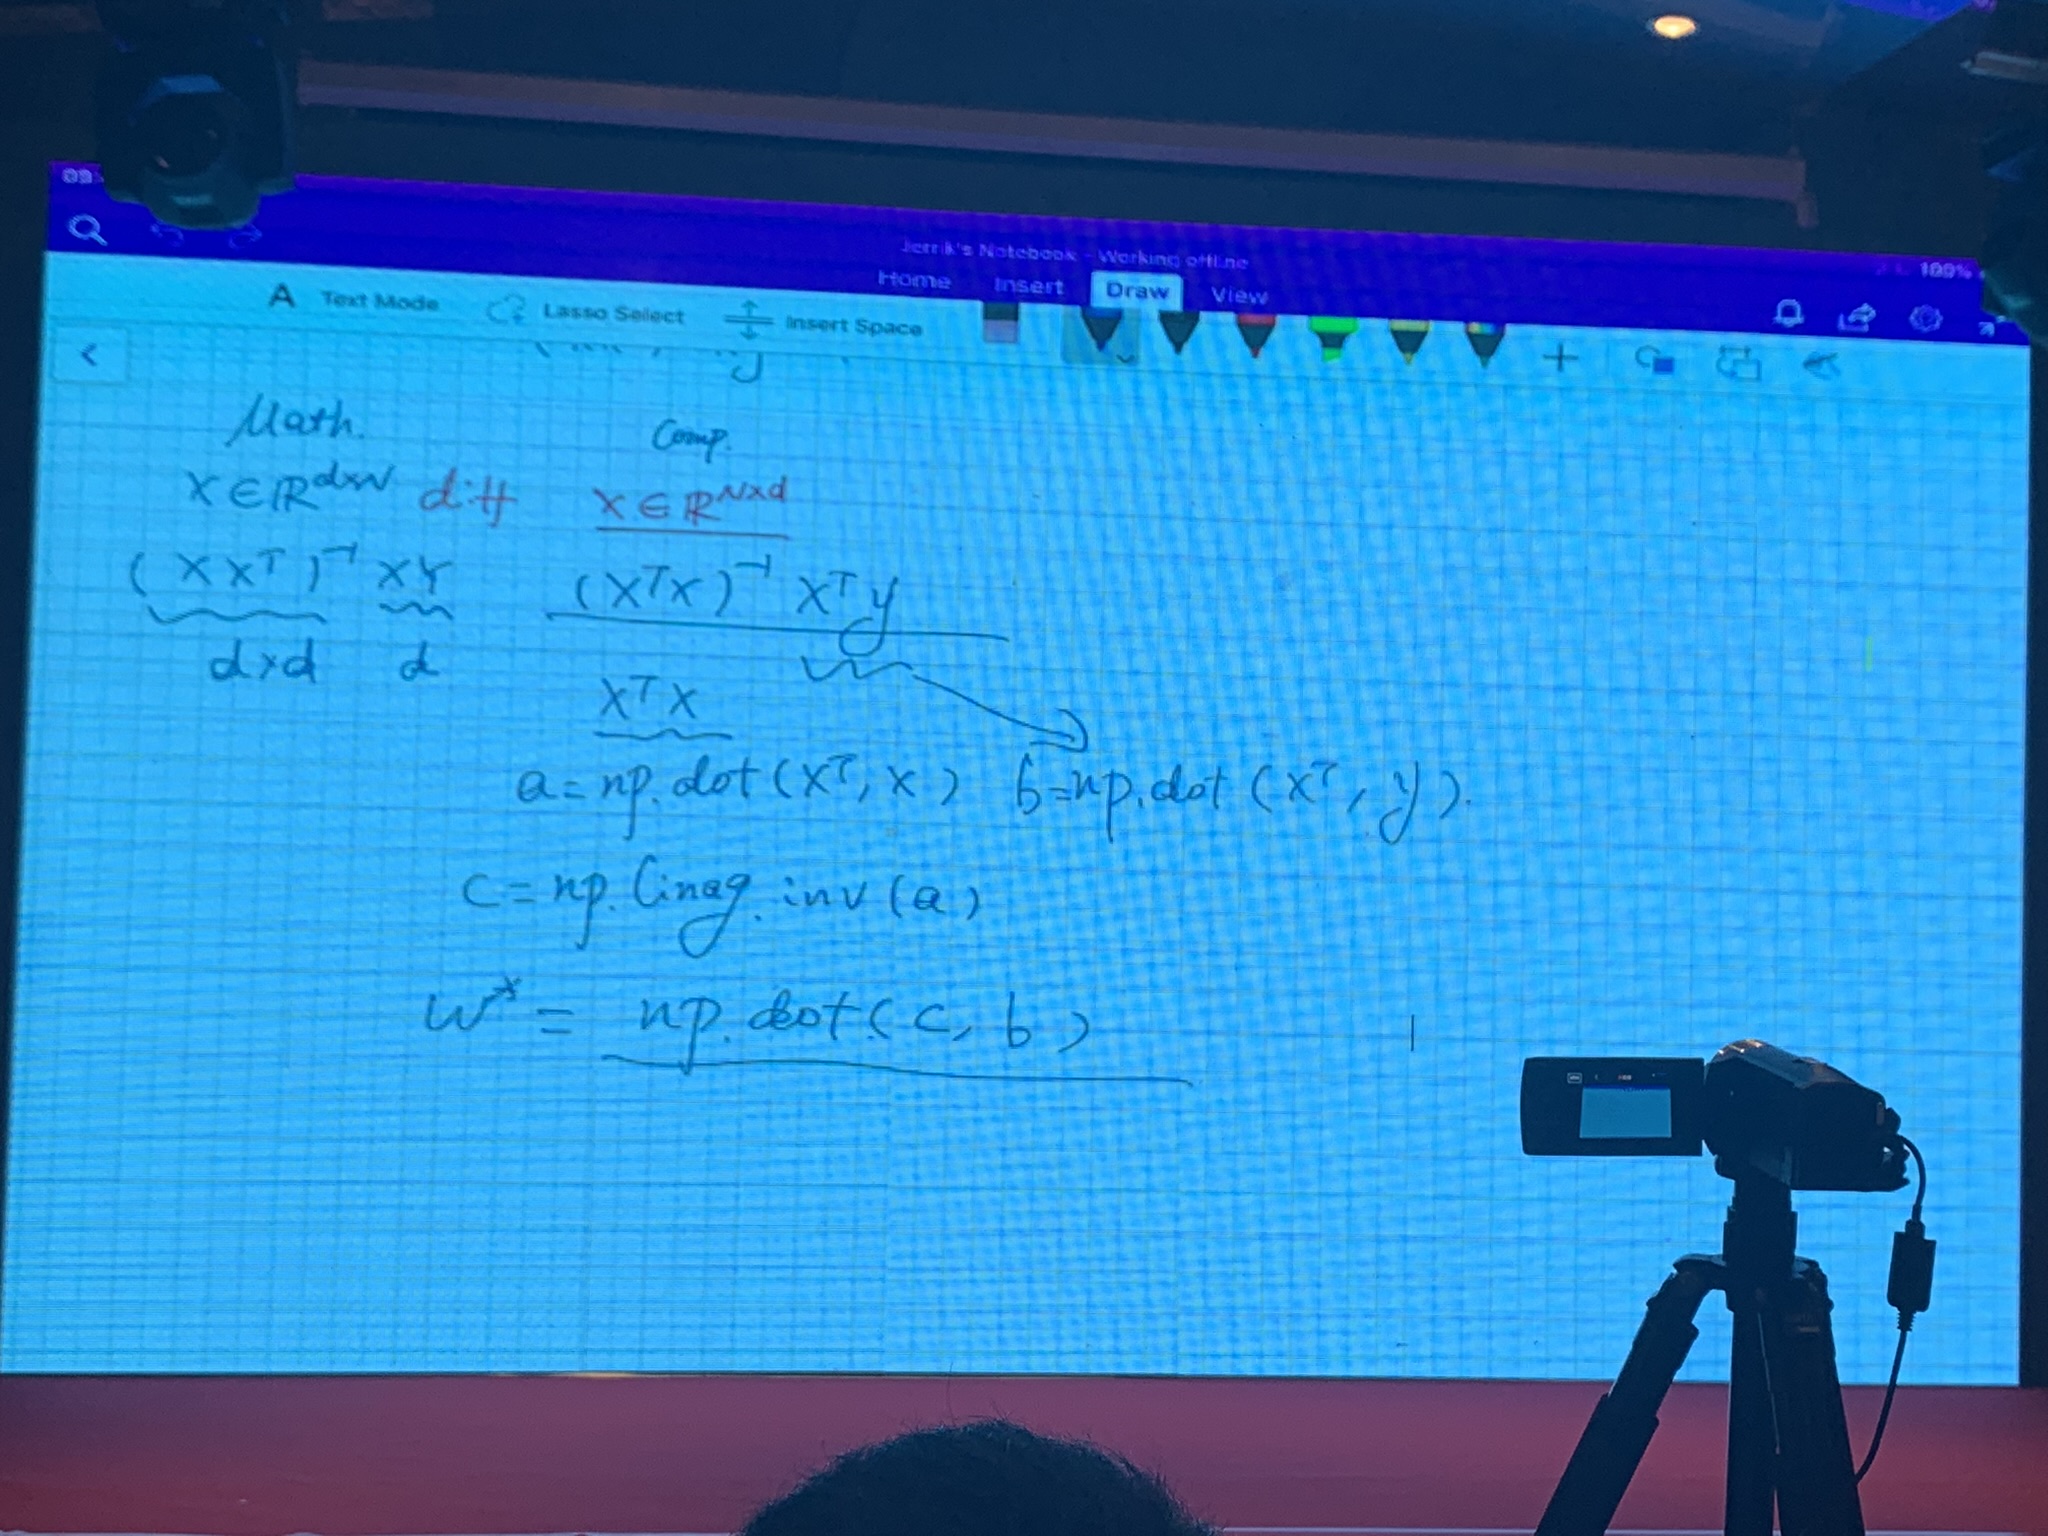 Jerrik's Notebook - Working offline
100%
Home Insert Draw View
A Text Mode Lasso Select Insert Space
Math. Comp.
X ∈ ℝ^{d×N} diff X ∈ ℝ^{N×d}
(XX^T)^{-1} XY (X^TX)^{-1} X^Ty
d×d d
X^TX
a=np.dot(X^T, X) b=np.dot(X^T, y).
C=np.linag.inv(a)
W^*= np.dot(C, b)